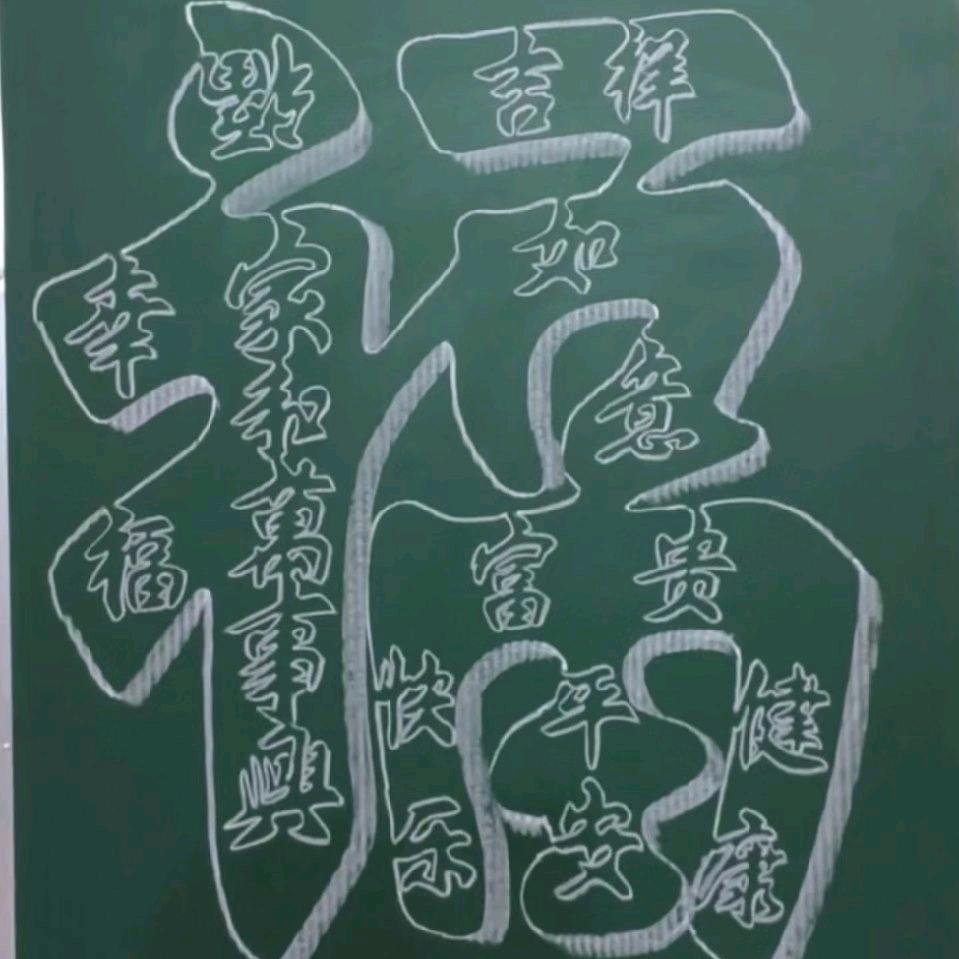 福
吉祥
如意
幸福
家和萬事興
富贵
快乐
平安
健康